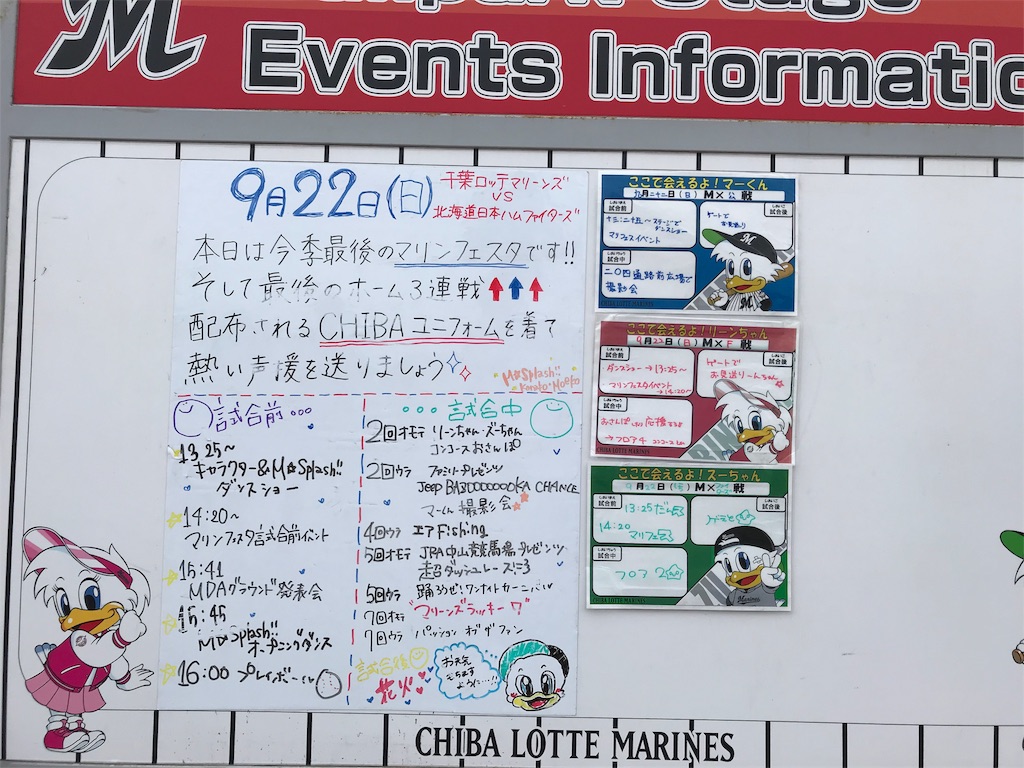 M
Events Informatio
9月22日(日)
千葉ロッテマリーンズ
VS
北海道日本ハムファイターズ
本日は今季最後のマリンフェスタです!!
そして最後のホーム3連戦
配布されるCHIBAユニフォームを着て
熱い声援を送りましょう
M☆Splash!!
試合前・・・
13:25~
キャラクター&M☆Splash!!
ダンスショー
14:20~
マリンフェスタ試合前イベント
15:41
MDAグラウンド発表会
15:45
M☆Splash!!
オープニングダンス
16:00 プレイボール
・・・試合中
2回オモテ リーンちゃん・ズーちゃん
コンコースおさんぽ
2回ウラ ファミリープレゼンツ
Jeep BAZOOOOOOKA CHANCE
マーくん撮影会
4回ウラ エアFishing
5回オモテ JRA中山競馬場プレゼンツ
超ダッシュレース
5回ウラ 踊ろうぜ!ワンナイトカーニバル
7回オモテ マリーンズラッキー7
7回ウラ パッション オブ ザ ファン
試合後
花火
お天気
もちます
ように…!!
ここで会えるよ!マーくん
九月二十二日(日) M×公 戦
試合前
十三:二五~ステージで
ダンスショー
マリフェスイベント
試合後
ゲートで
試合中
二〇四通路前広場で
撮影会
CHIBA LOTTE MARINES
ここで会えるよ!リーンちゃん
9月22日(日) M×F 戦
試合前
ダンスショー→13:25~
マリンフェスタイベント
→14:20
試合後
ゲートで
お見送りーんちゃん
試合中
おさんぽ
→フロア4
CHIBA LOTTE MARINES
ここで会えるよ!ズーちゃん
M× 戦
試合前
13:25だし
14:20
マリフェ
試合後
試合中
フロア2
CHIBA LOTTE MARINES
CHIBA LOTTE MARINES